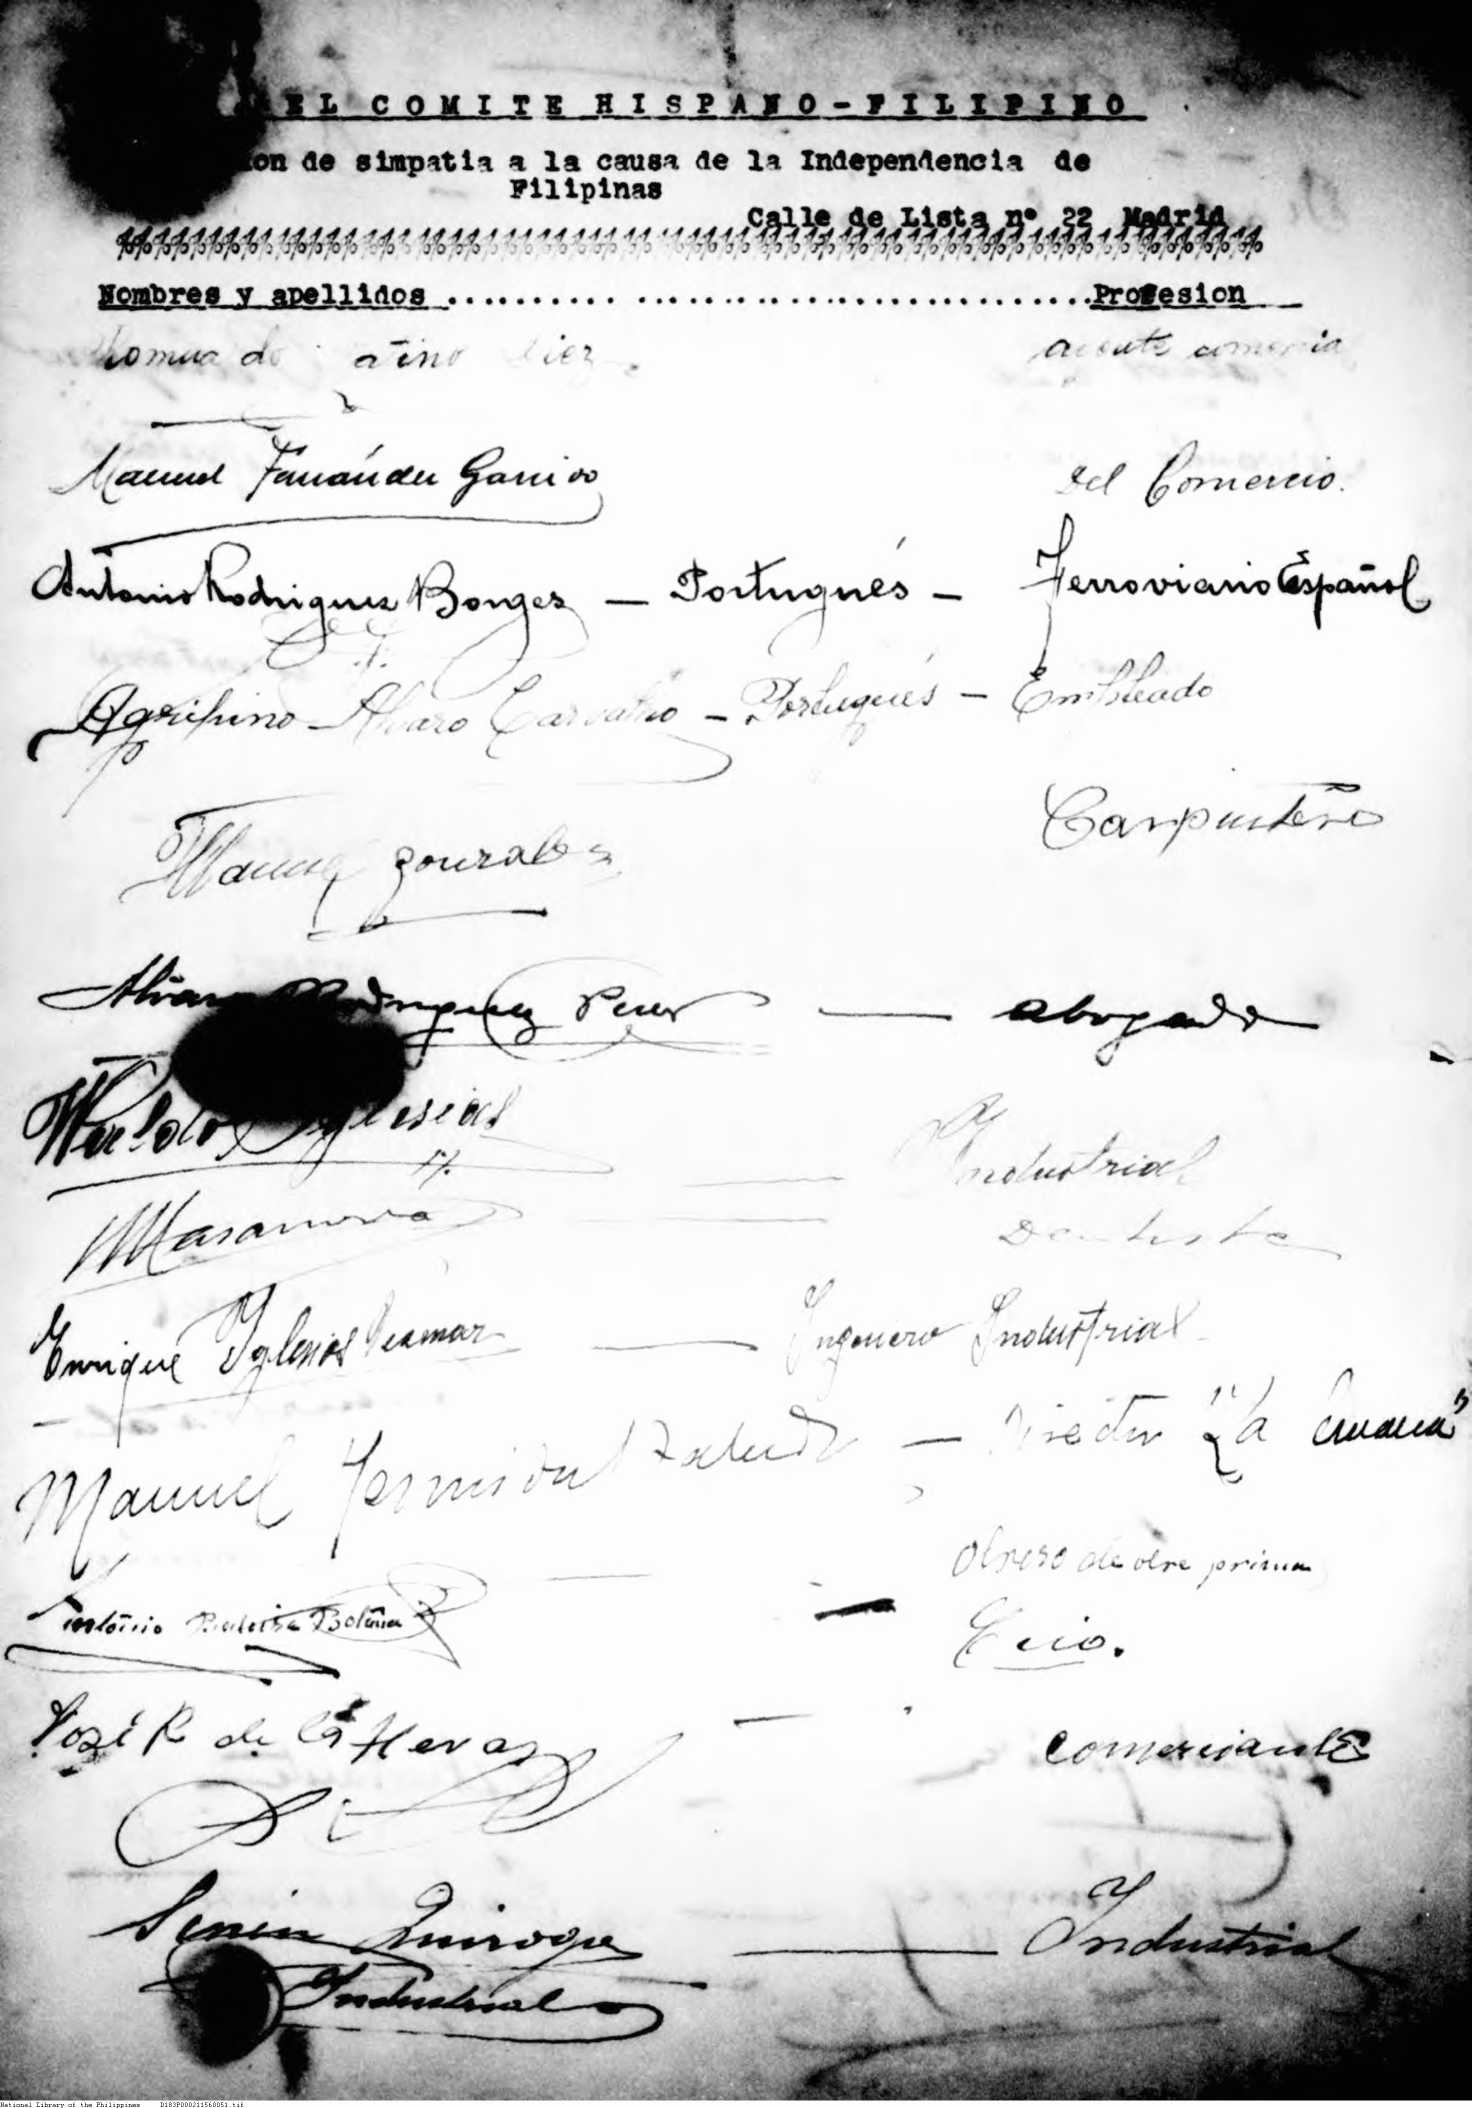 EL COMITE HISPANO-FILIPINO
on de simpatia a la causa de la Independencia de
Filipinas
Calle de Lista nº 22 Madrid
Nombres y apellidos ........................................Profesion
comercia
Manuel Fernández Garrido Del Comercio.
Antonio Rodriguez Borges — Portugués — Ferroviario Español
Agripino Alvaro Carvalho — Portugués — Empleado
Manuel Gonzalez Carpintero
Alvaro Rodriguez Perez — abogado
Waldo Iglesias — Industrial
— Dentista
Enrique Iglesias — Ingeniero Industrial
Manuel — Director "La
Antonio Bolaña — Obrero de obra prima
José R de las Heras — comerciante
Quiroga — Industrial
Industrial
National Library of the Philippines D183P000211560051.tif